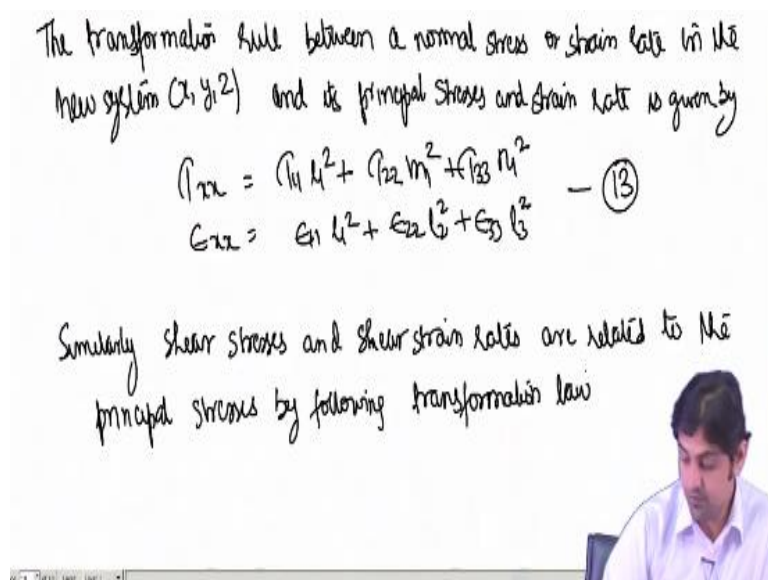 The transformation rule between a normal stress or strain rate in the
new system (x, y, z) and its principal stresses and strain rate is given by
τxx = τ11 l1² + τ22 m1² + τ33 n1²
— 13
ϵxx = ϵ11 l1² + ϵ22 l2² + ϵ33 l3²
Similarly shear stresses and shear strain rates are related to the
principal stresses by following transformation law